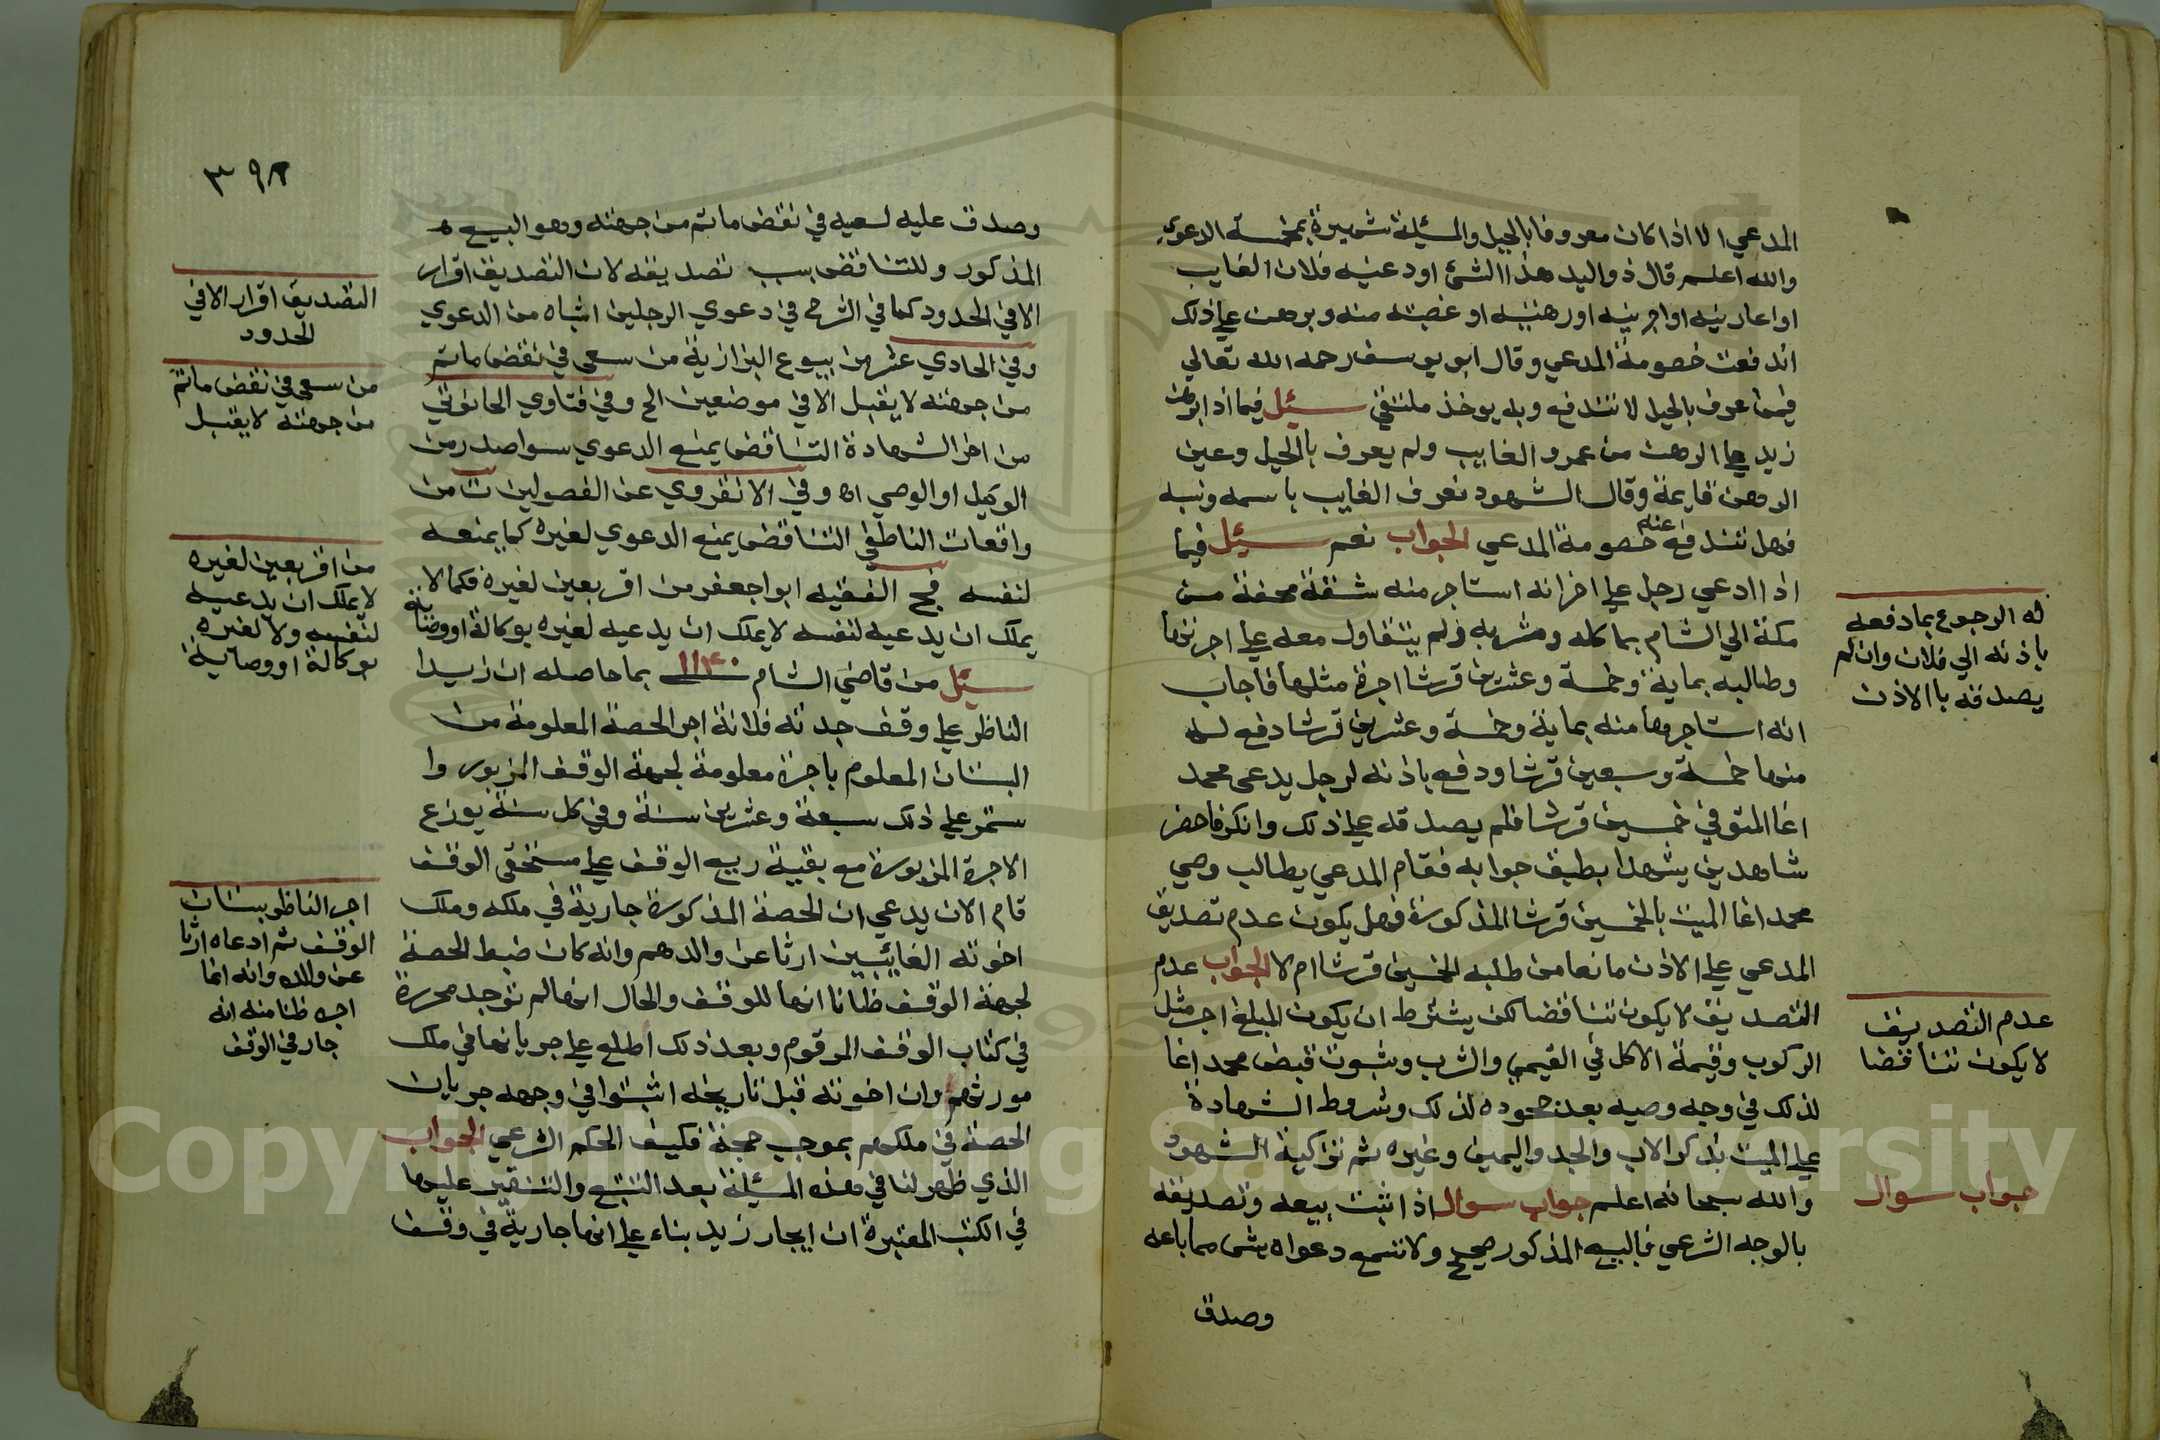 المدعي الا اذا كان معروفا بالحيل والمسئلة شهيرة بمخمسة الدعوي
والله اعلم قال ذو اليد هذا الشئ اودعنيه فلان الغايب
او اعارنيه او اجرنيه او رهننيه او غصبته منه وبرهن علي ذلك
اندفعت خصومة المدعي وقال ابو يوسف رحمه الله تعالي
فيمن عرف بالحيل لا تندفع وبه يوخذ ملتقي سئل فيما اذا برهن
زيد علي الرهن من عمرو الغايب ولم يعرف بالحيل وعين
الرهن قايمة وقال الشهود نعرف الغايب باسمه ونسبه
فهل تندفع عنه خصومة المدعي الجواب نعم سئل فيما
اذا ادعي رجل علي اخر انه استاجر منه شقة محفة من
مكة الي الشام بماكله ومشربه ولم يتقاول معه علي اجرتها
وطالبه بماية وخمسة وعشرين قرشا اجرة مثلها فاجاب
انه استاجرها منه بماية وخمسة وعشرين قرشا دفع له
منها خمسة وسبعين قرشا ودفع باذنه لرجل يدعي محمد
اغا المتوفي خمسين قرشا فلم يصدقه علي ذلك وانكر فاحضر
شاهدين يشهدا بطبق جوابه فقام المدعي يطالب وصي
محمد اغا الميت بالخمسين قرشا المذكورة فهل يكون عدم تصديق
المدعي علي الاذن مانعا من طلبه الخمسين قرشا ام لا الجواب عدم
التصديق لا يكون تناقضا لكن يشترط ان يكون المبلغ اجر مثل
الركوب وقيمة الاكل في القيمي والشرب وثبوت قبض محمد اغا
لذلك في وجه وصيه بعد جحوده لذلك وشروط الشهادة
علي الميت بذكر الاب والجد واليمين وغيره ثم تزكية الشهود
والله سبحانه اعلم جواب سوال اذا ثبت بيعه وتصديقه
بالوجه الشرعي فالبيع المذكور صحيح ولا تسمع دعواه بشي مما باعه
وصدق
له الرجوع بما دفعه
باذنه الي فلان وان لم
يصدقه باالاذن
عدم التصديق
لا يكون تناقضا
جواب سوال
٣٩٨
وصدق عليه لسعيه في نقض ما تم من جهته وهو البيع
المذكور وللتناقض بسبب تصديقه لان التصديق اقرار
الا في الحدود كما في الشرح في دعوي الرجلين اشباه من الدعوي
وفي الحادي عشر من بيوع البزازية من سعي في نقض ما تم
من جهته لا يقبل الا في موضعين الخ وفي فتاوي الحانوتي
من اخر الشهادة التناقض يمنع الدعوي سوا صدر من
الوكيل او الوصي اه وفي الانقروي عن الفصولين ت من
واقعات الناطفي التناقض يمنع الدعوي لغيره كما يمنعه
لنفسه فج الفقيه ابو اجعفر من اقر بعين لغيره فكما لا
يملك ان يدعيه لنفسه لا يملك ان يدعيه لغيره بوكالة او وصاية
سئل من قاضي الشام ١١٤٠ بما حاصله ان زيدا
الناظر علي وقف جدته فلانة اجر الحصة المعلومة من
البستان المعلوم باجرة معلومة لجهة الوقف المزبور وا
ستمر علي ذلك سبعة وعشرين سنة وفي كل سنة يوزع
الاجرة المزبورة مع بقية ريع الوقف علي مستحقي الوقف
قام الان يدعي ان الحصة المذكورة جارية في ملكه وملك
اخوته الغائبين ارثا عن والدهم وانه كان ضبط الحصة
لجهة الوقف ظانا انها للوقف والحال انها لم توجد محررة
في كتاب الوقف المرقوم وبعد ذلك اطلع علي جريانها في ملك
مورثهم وان اخوته قبل تاريخه اثبتوا في وجهه جريان
الحصة في ملكهم بموجب حجة فكيف الحكم الشرعي الجواب
الذي ظهر لنا في هذه المسئلة بعد التتبع والتنقير عليها
في الكتب المعتبرة ان ايجار زيد بناء علي انها جارية في وقف
التصديق اقرار الا في
الحدود
من سعي في نقض ما تم
من جهته لا يقبل
من اقر بعين لغيره
لا يملك ان يدعيه
لنفسه ولا لغيره
بوكالة او وصاية
اجر الناظر بستان
الوقف ثم ادعاه ارثا
عن والده وانه انما
اجره ظنا منه انه
جار في الوقف
Copyright © King Saud University